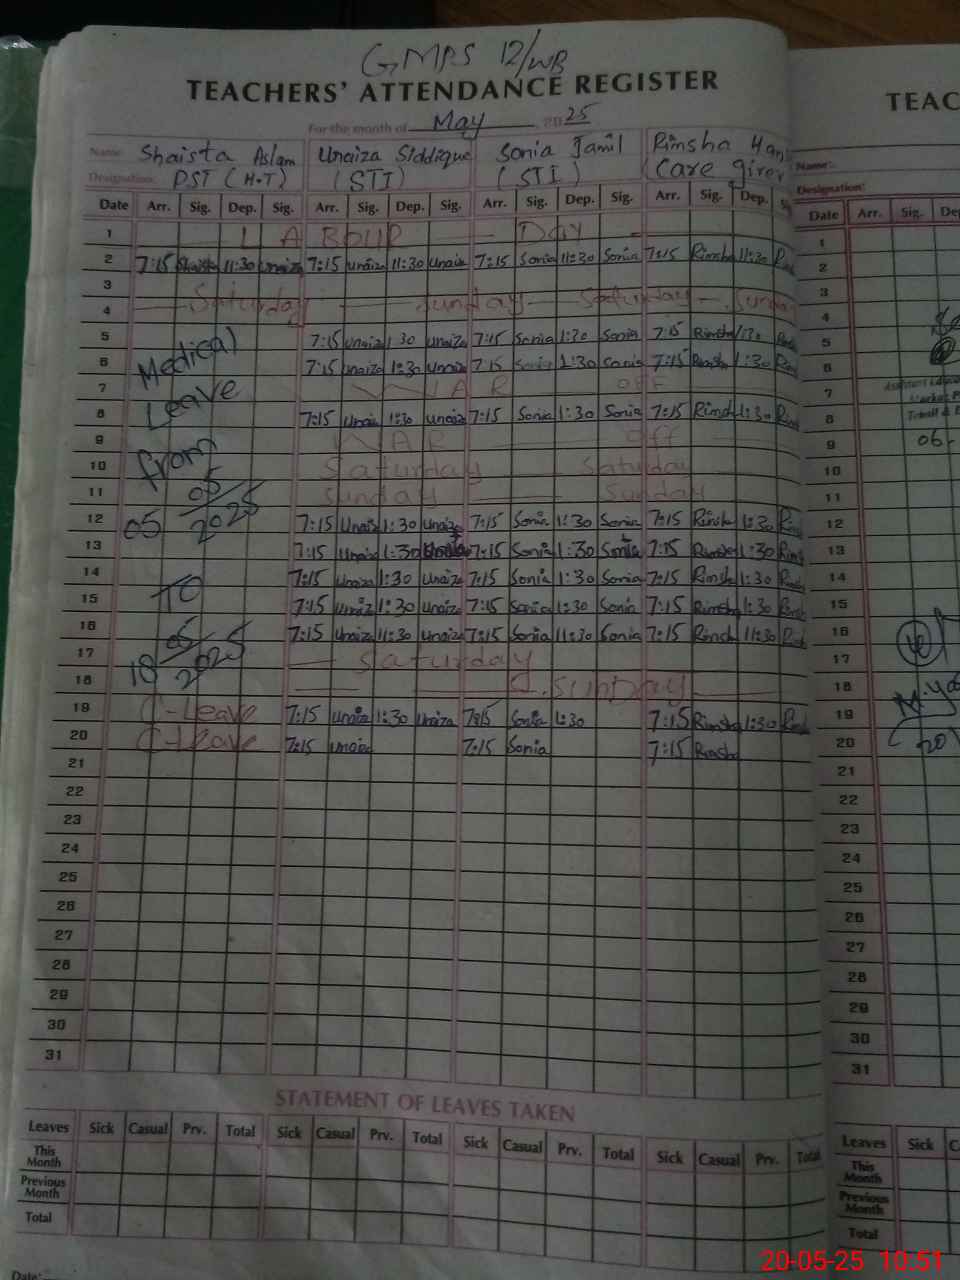 GMPS 12/WB
TEACHERS' ATTENDANCE REGISTER
For the month of May 2025
Name: Shaista Aslam Unaiza Siddique Sonia Jamil Rimsha
Designation: PST (H.T) (STI) (STI) (Care giver
Date Arr. Sig. Dep. Sig. Arr. Sig. Dep. Sig. Arr. Sig. Dep. Sig. Arr. Sig. Dep.
1 LABOUR DAY
2 7:15 Shaista 11:30 Unaiza 7:15 Unaiza 11:30 Unaiza 7:15 Sonia 11:30 Sonia 7:15 Rimsha 11:30
3
4 Saturday Sunday Saturday Sunday
5 7:15 Unaiza 1:30 Unaiza 7:15 Sonia 1:30 Sonia 7:15 Rimsha 1:30
6 Medical 7:15 Unaiza 1:30 Unaiza 7:15 Sonia 1:30 Sonia 7:15 Rimsha 1:30
7 Leave WAR OFF
8 7:15 Unaiza 1:30 Unaiza 7:15 Sonia 1:30 Sonia 7:15 Rimsha 1:30
9 from WAR Off
10 Saturday Saturday
11 Sunday Sunday
12 05 05/2025 7:15 Unaiza 1:30 Unaiza 7:15 Sonia 1:30 Sonia 7:15 Rimsha 1:30
13 7:15 Unaiza 1:30 Unaiza 7:15 Sonia 1:30 Sonia 7:15 Rimsha 1:30
14 TO 7:15 Unaiza 1:30 Unaiza 7:15 Sonia 1:30 Sonia 7:15 Rimsha 1:30
15 7:15 Unaiza 1:30 Unaiza 7:15 Sonia 1:30 Sonia 7:15 Rimsha 1:30
16 7:15 Unaiza 11:30 Unaiza 7:15 Sonia 11:30 Sonia 7:15 Rimsha 11:30
17 18 05/2025 Saturday
18 SUNDAY
19 C-Leave 7:15 Unaiza 1:30 Unaiza 7:15 Sonia 1:30 7:15 Rimsha 1:30
20 C-Leave 7:15 Unaiza 7:15 Sonia 7:15 Rimsha
21
22
23
24
25
26
27
28
29
30
31
STATEMENT OF LEAVES TAKEN
Leaves Sick Casual Prv. Total Sick Casual Prv. Total Sick Casual Prv. Total Sick Casual Prv. Total
This Month
Previous Month
Total
Date:
TEAC
Name:
Designation:
Date Arr. Sig.
1
2
3
4
5
6
7
8
9 06-
10
11
12
13
14
15
16
17
18
19
20
21
22
23
24
25
26
27
28
29
30
31
Leaves Sick
This Month
Previous Month
Total
20-05-25 10:51